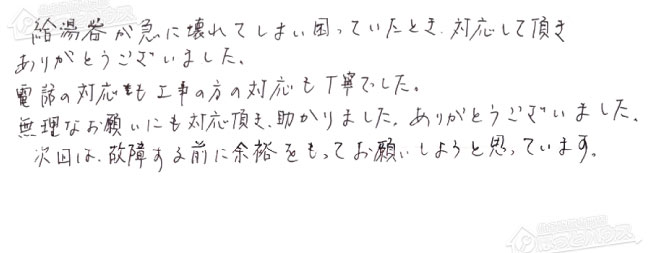 給湯器が急に壊れてしまい困っていたとき、対応して頂き
ありがとうございました。
電話の対応も工事の方の対応も丁寧でした。
無理なお願いにも対応頂き、助かりました。ありがとうございました。
次回は、故障する前に余裕をもってお願いしようと思っています。